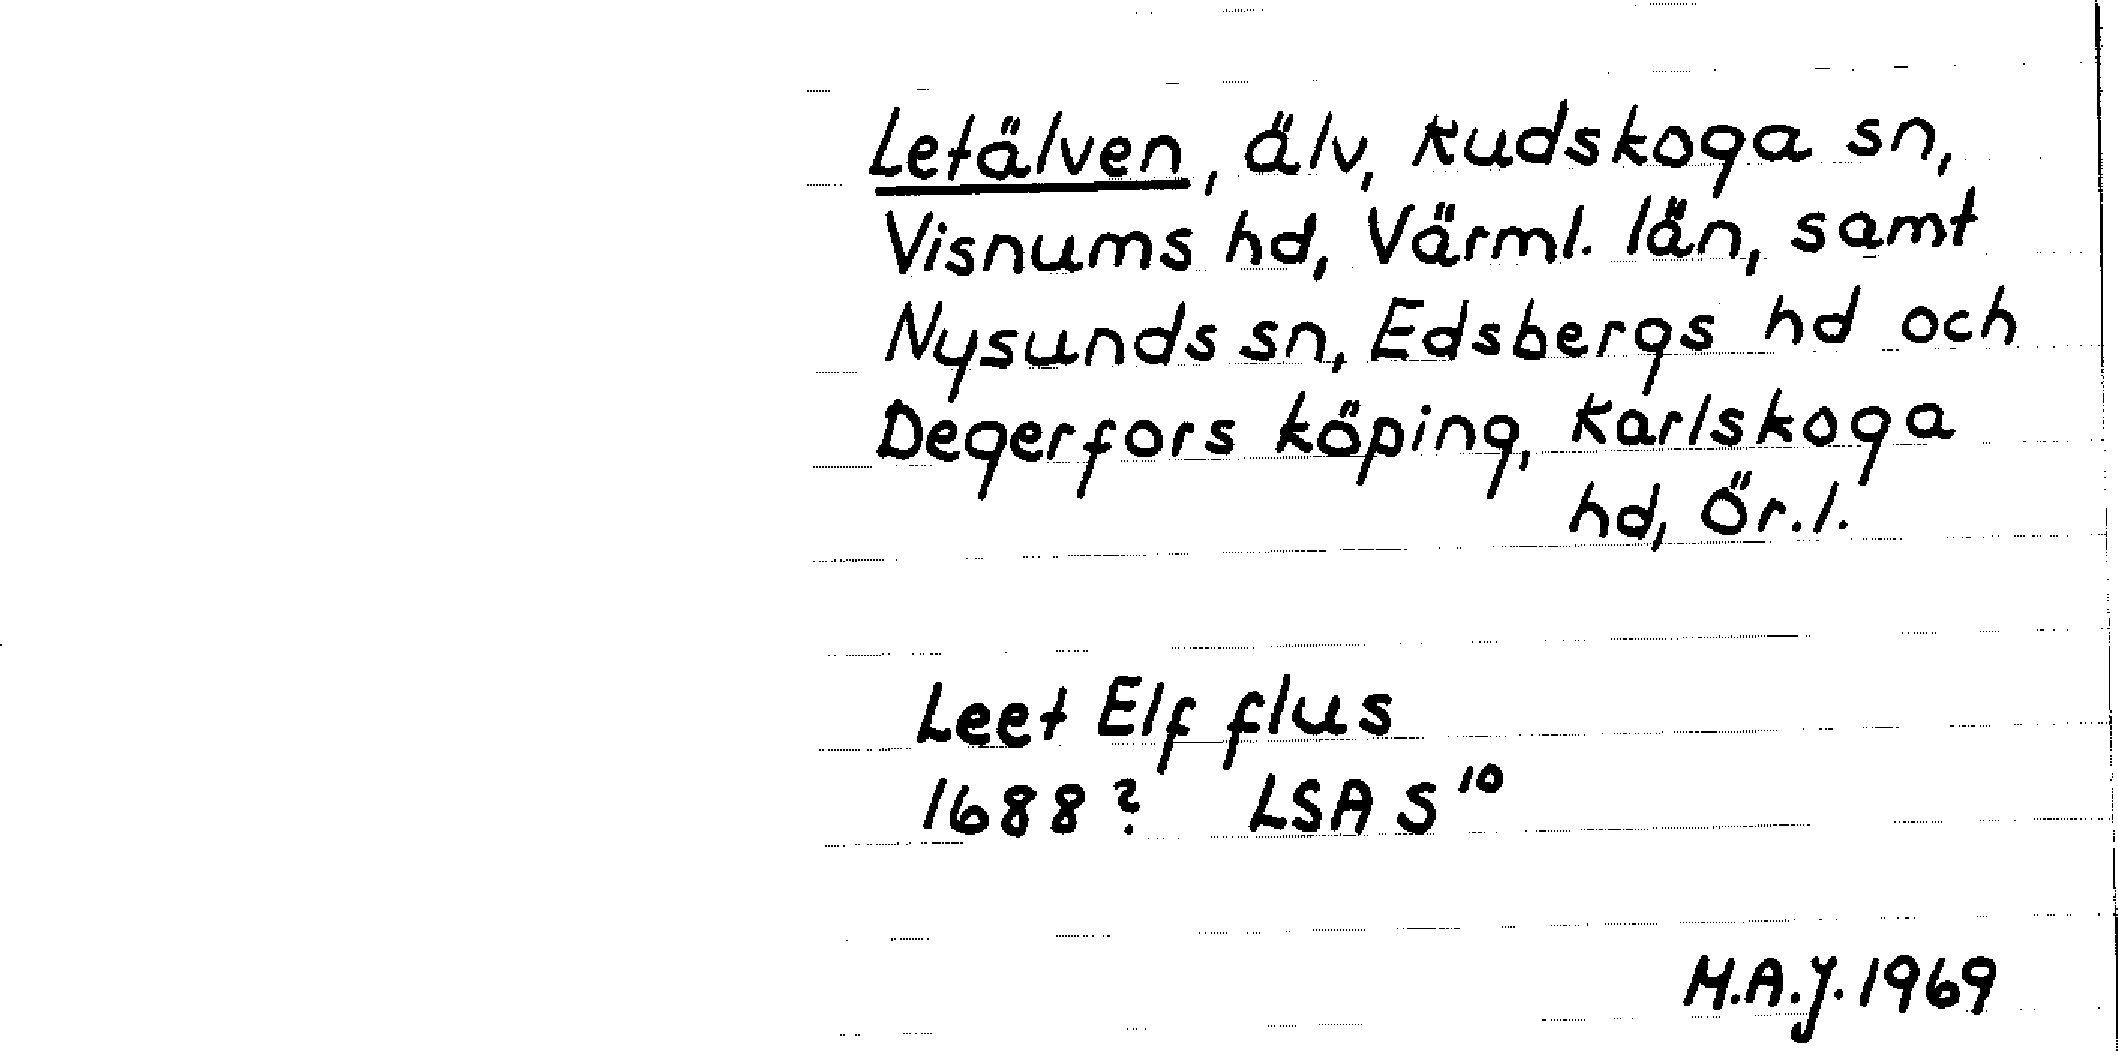 Letälven, älv, Rudskoga sn,
Visnums hd, Värml. län, samt
Nysunds sn, Edsbergs hd och
Degerfors köping, Karlskoga
hd, Ör.l.
Leet Elf flus
1688? LSA S¹⁰
M.A.J. 1969